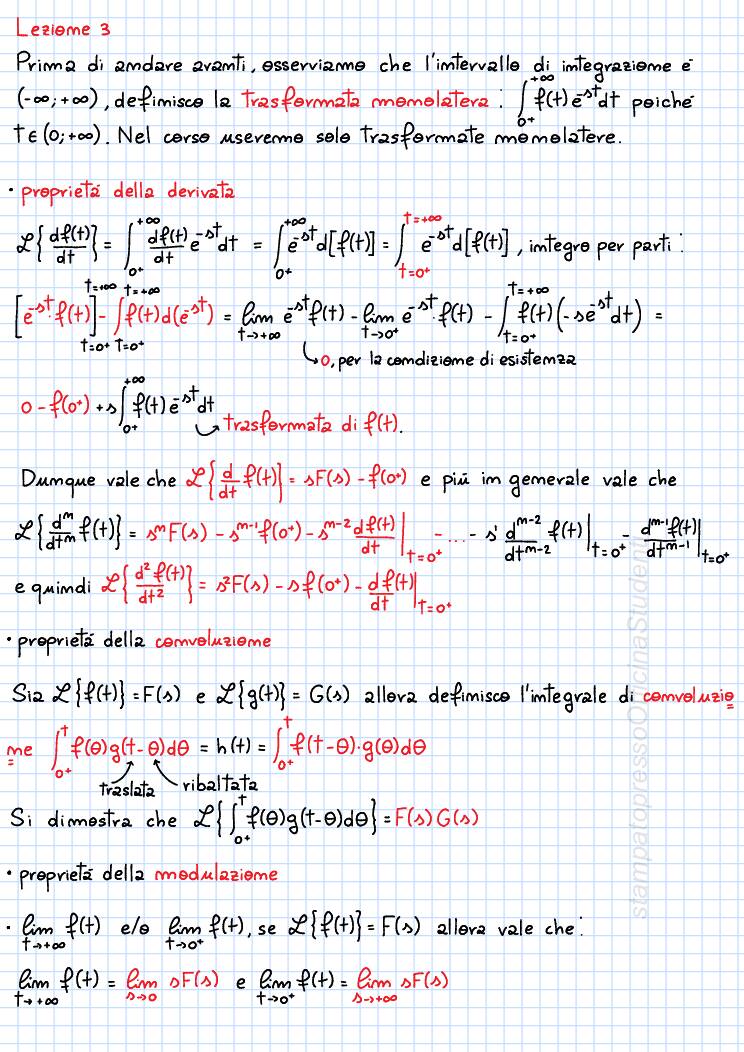 Lezione 3
Prima di andare avanti, osserviamo che l'intervallo di integrazione é
(-∞;+∞), definisco la trasformata monolatera : ∫_{0⁺}^{+∞} f(t) e^{-st} dt poiché
t ∈ (0;+∞). Nel corso useremo solo trasformate monolatere.
· proprietá della derivata
ℒ{df(t)/dt} = ∫_{0⁺}^{+∞} df(t)/dt e^{-st} dt = ∫_{0⁺}^{+∞} e^{-st} d[f(t)] = ∫_{t=0⁺}^{t=+∞} e^{-st} d[f(t)] , integro per parti :
[e^{-st} · f(t)]_{t=0⁺}^{t=+∞} - ∫_{t=0⁺}^{t=+∞} f(t) d(e^{-st}) = lim_{t→+∞} e^{-st} f(t) - lim_{t→0⁺} e^{-st} · f(t) - ∫_{t=0⁺}^{t=+∞} f(t) (-s e^{-st} dt) =
0, per la condizione di esistenza
0 - f(0⁺) + s ∫_{0⁺}^{+∞} f(t) e^{-st} dt
trasformata di f(t).
Dunque vale che ℒ{d/dt f(t)} = sF(s) - f(0⁺) e piú in generale vale che
ℒ{dⁿ/dtⁿ f(t)} = sⁿF(s) - sⁿ⁻¹f(0⁺) - sⁿ⁻² df(t)/dt |_{t=0⁺} - ... - s¹ dⁿ⁻²/dtⁿ⁻² f(t) |_{t=0⁺} - dⁿ⁻¹f(t)/dtⁿ⁻¹ |_{t=0⁺}
e quindi ℒ{d²f(t)/dt²} = s²F(s) - sf(0⁺) - df(t)/dt |_{t=0⁺}
· proprietá della convoluzione
Sia ℒ{f(t)} = F(s) e ℒ{g(t)} = G(s) allora definisco l'integrale di convoluzio
ne ∫_{0⁺}^{t} f(θ)g(t-θ)dθ = h(t) = ∫_{0⁺}^{t} f(t-θ)·g(θ)dθ
traslata ribaltata
Si dimostra che ℒ{∫_{0⁺}^{t} f(θ)g(t-θ)dθ} = F(s)G(s)
· proprietá della modulazione
· lim_{t→+∞} f(t) e/o lim_{t→0⁺} f(t), se ℒ{f(t)} = F(s) allora vale che :
lim_{t→+∞} f(t) = lim_{s→0} sF(s) e lim_{t→0⁺} f(t) = lim_{s→+∞} sF(s)
stampatopressoOfficinaStudenti